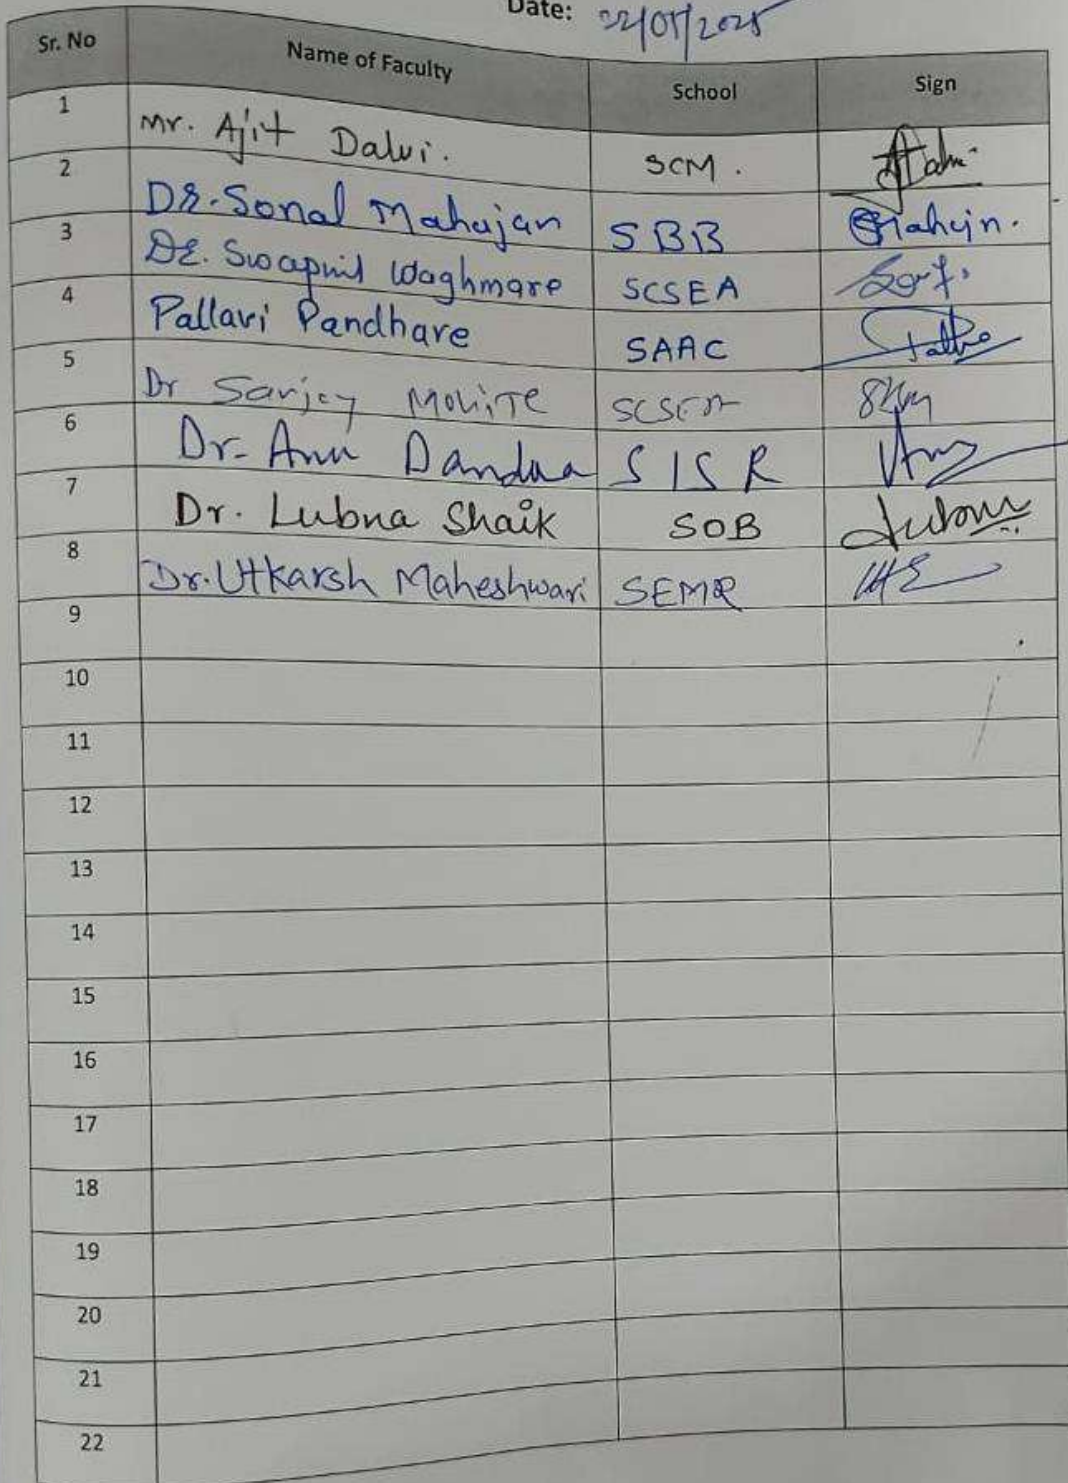 Date: 22/05/2025
Sr. No Name of Faculty School Sign
1 Mr. Ajit Dalvi. SCM.
2 Dr. Sonal Mahajan SBB
3 Dr. Swapnil Waghmare SCSEA
4 Pallavi Pandhare SAAC
5 Dr Sanjay Mohite SCSEA
6 Dr. Anu SISR
7 Dr. Lubna Shaik SOB
8 Dr. Utkarsh Maheshwari SEMR
9
10
11
12
13
14
15
16
17
18
19
20
21
22